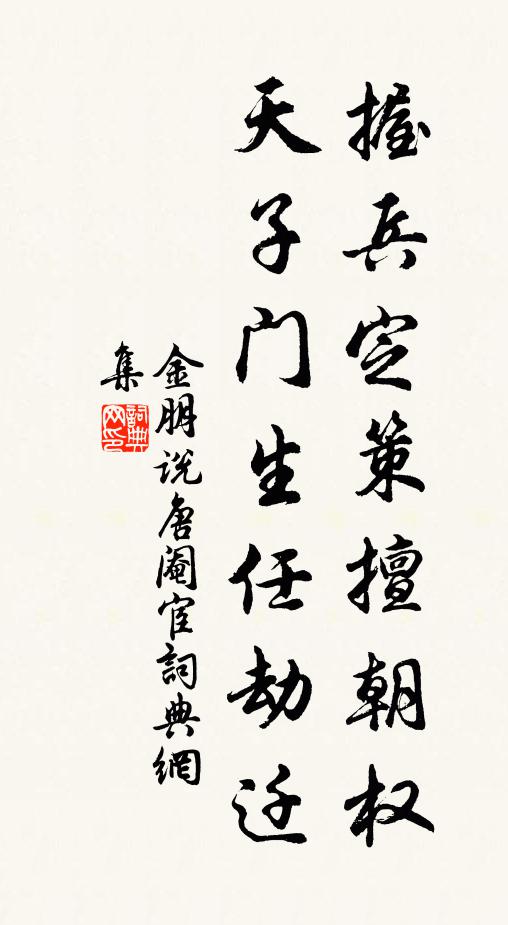 握兵定策擅朝权
天子门生任劫迁
金朋说唐阉宦詞典網
集
詞典
网印